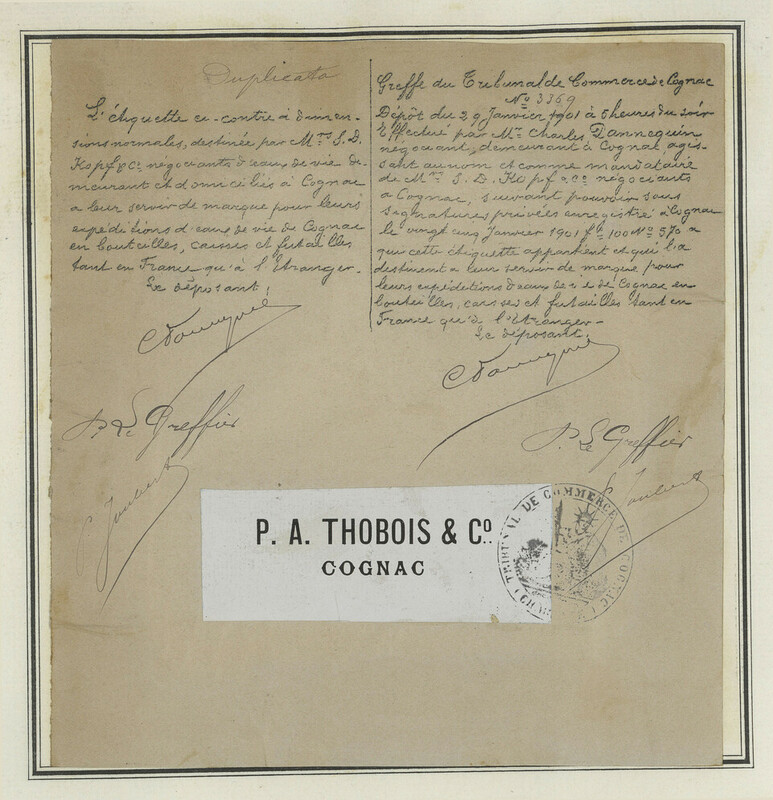 Duplicata
L'étiquette ci-contre à dimen-
sions normales, destinée par Mrs S. D.
Kopf & Co négociants d'eaux de vie de-
meurant et domiciliés à Cognac
a leur servir de marque pour leurs
expéditions d'eaux de vie de Cognac
en bouteilles, caisses et futailles
tant en France qu'à l'Etranger.
Le déposant,
P. Le Greffier
Joubert
Greffe du Tribunal de Commerce de Cognac
No 3369
Dépôt du 29 Janvier 1901 à 5 heures du soir
Effectué par Mr Charles Dannequin
négociant, demeurant à Cognac, agis-
sant au nom et comme mandataire
de Mrs S. D. Kopf & Co négociants
a Cognac, suivant pouvoir sous
signatures privées enregistré à Cognac
le vingt cinq Janvier 1901 fo 100 No 570 a
qui cette étiquette appartient et qui la
destinent a leur servir de marque pour
leurs expéditions d'eaux de vie de Cognac en
bouteilles, caisses et futailles tant en
France qu'à l'Etranger.
Le déposant,
P. Le Greffier
Joubert
P. A. THOBOIS & Co.
COGNAC
TRIBUNAL DE COMMERCE DE COGNAC